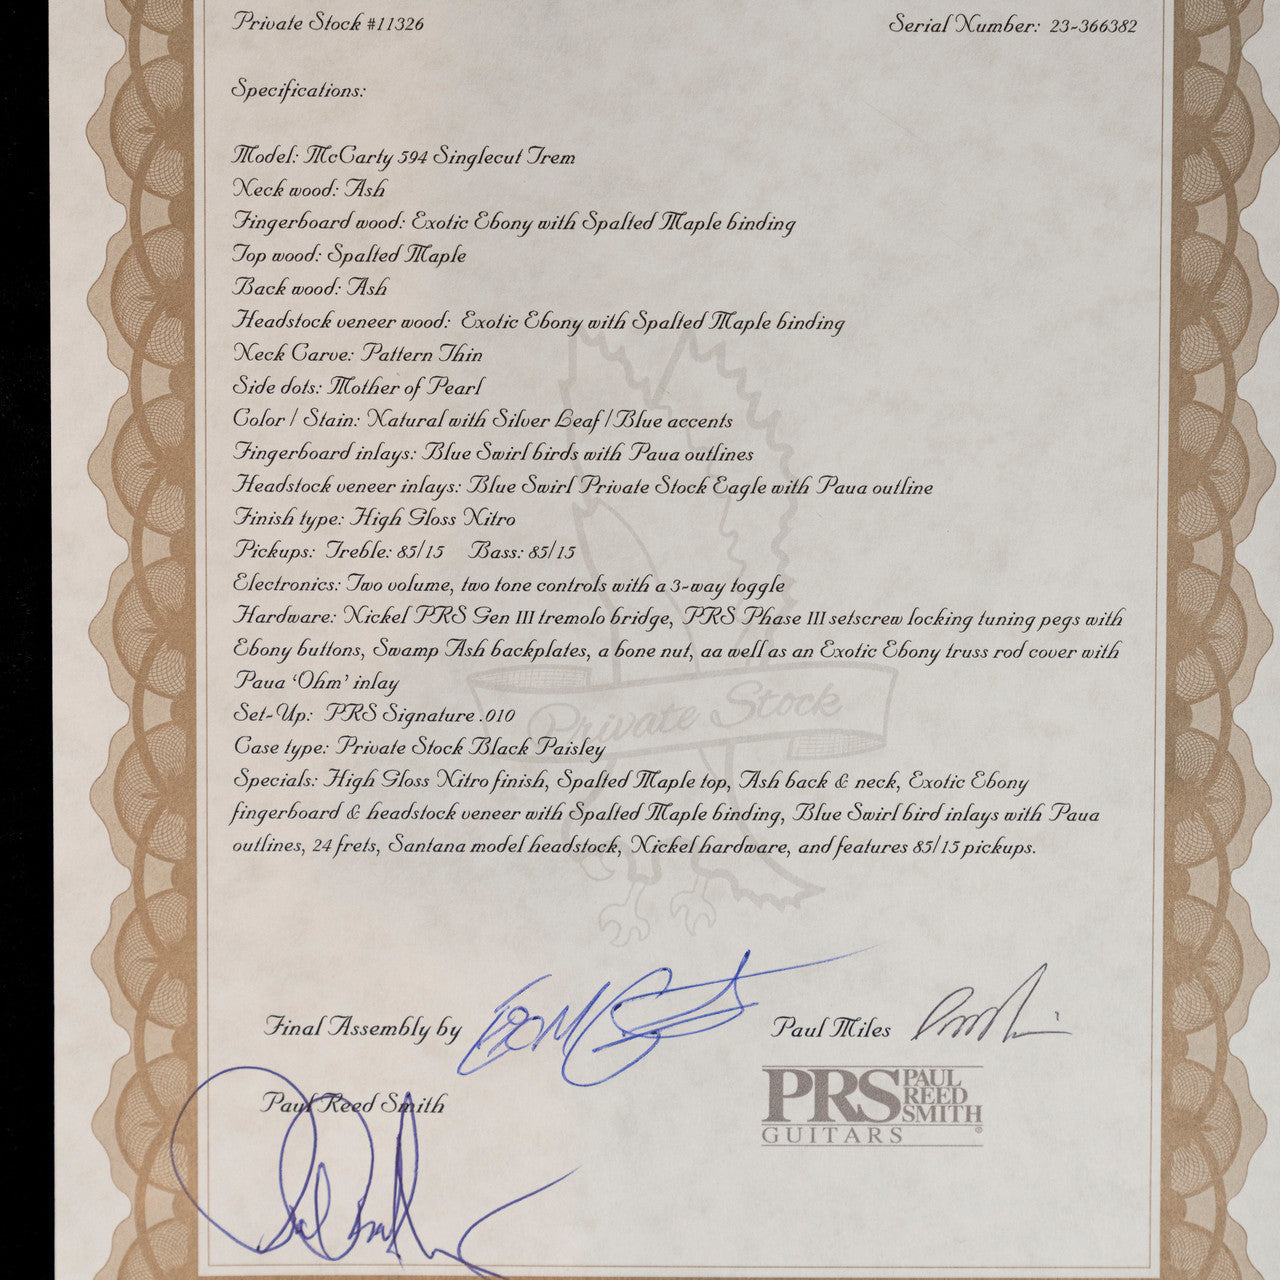 Private Stock #11326
Serial Number: 23-366382
Specifications:
Model: McCarty 594 Singlecut Trem
Neck wood: Ash
Fingerboard wood: Exotic Ebony with Spalted Maple binding
Top wood: Spalted Maple
Back wood: Ash
Headstock veneer wood: Exotic Ebony with Spalted Maple binding
Neck Carve: Pattern Thin
Side dots: Mother of Pearl
Color / Stain: Natural with Silver Leaf / Blue accents
Fingerboard inlays: Blue Swirl birds with Paua outlines
Headstock veneer inlays: Blue Swirl Private Stock Eagle with Paua outline
Finish type: High Gloss Nitro
Pickups: Treble: 85/15 Bass: 85/15
Electronics: Two volume, two tone controls with a 3-way toggle
Hardware: Nickel PRS Gen III tremolo bridge, PRS Phase III setscrew locking tuning pegs with
Ebony buttons, Swamp Ash backplates, a bone nut, aa well as an Exotic Ebony truss rod cover with
Paua 'Ohm' inlay
Private Stock
Set-Up: PRS Signature .010
Case type: Private Stock Black Paisley
Specials: High Gloss Nitro finish, Spalted Maple top, Ash back & neck, Exotic Ebony
fingerboard & headstock veneer with Spalted Maple binding, Blue Swirl bird inlays with Paua
outlines, 24 frets, Santana model headstock, Nickel hardware, and features 85/15 pickups.
Final Assembly by
Paul Miles
Paul Reed Smith
PRS PAUL REED SMITH
GUITARS